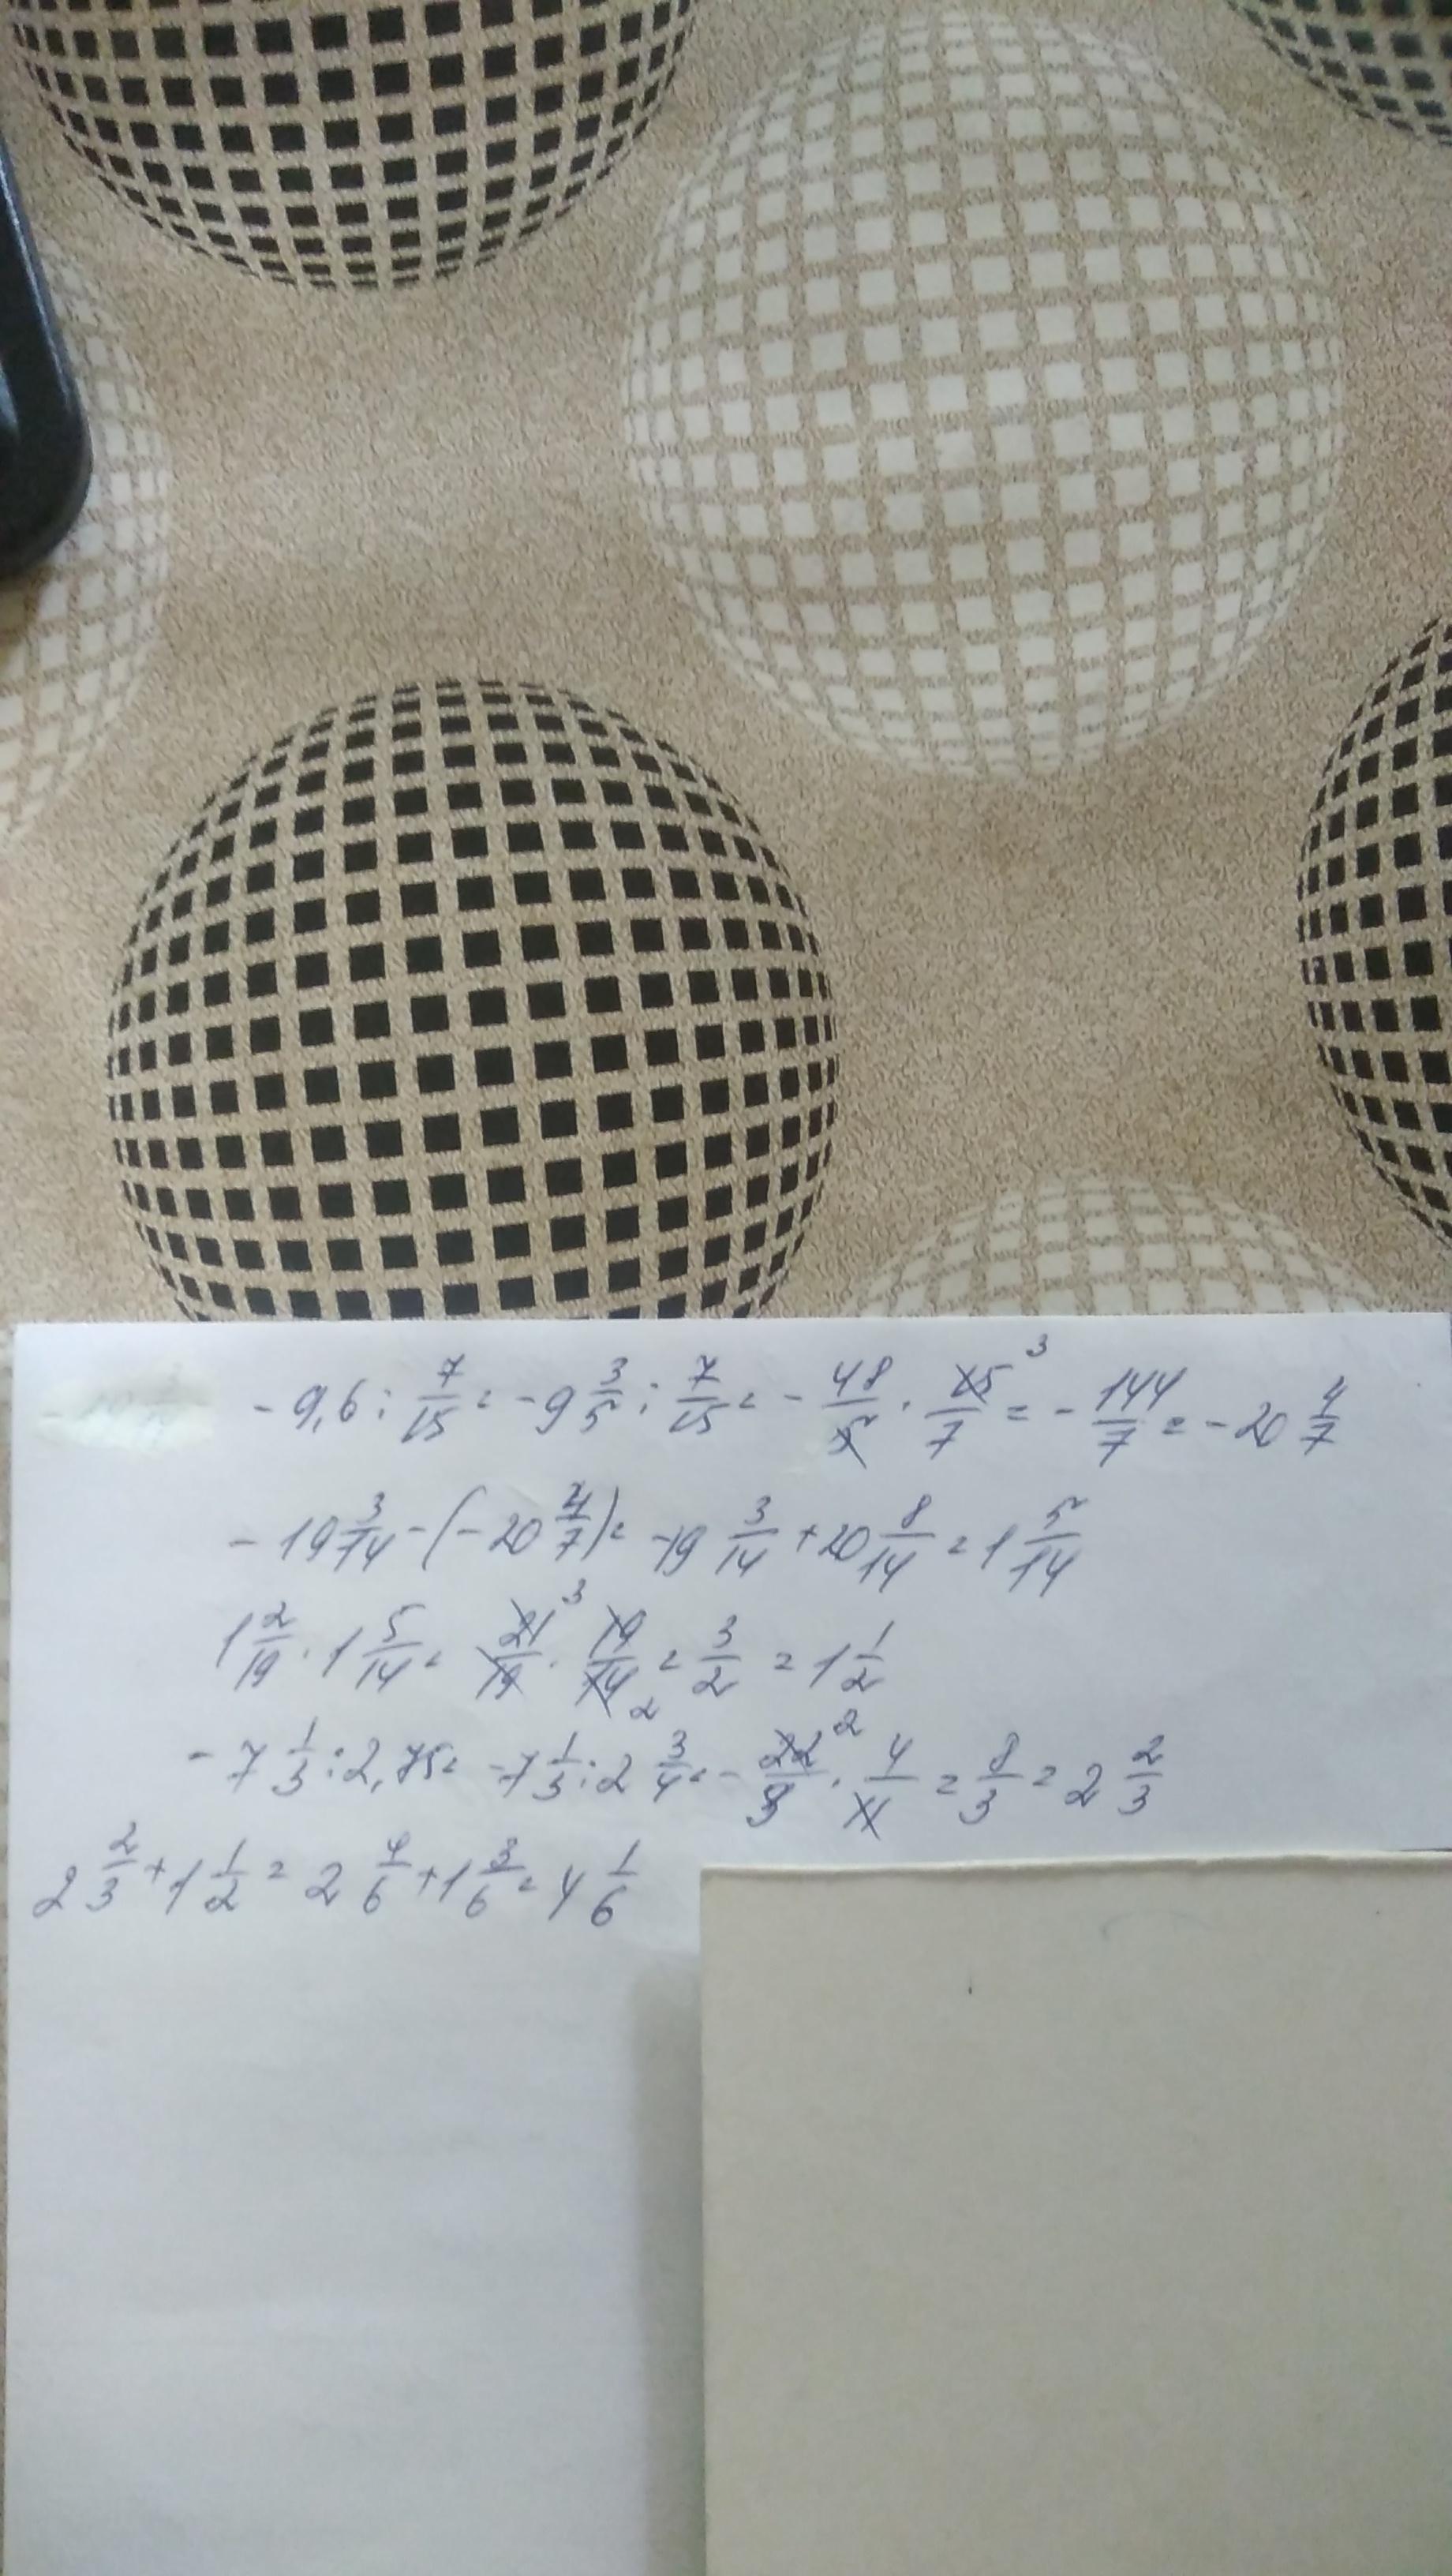 - 9,6 : 7/15 = - 9 3/5 : 7/15 = - 48/5 · 15/7 3 = - 144/7 = - 20 4/7
- 19 3/14 - (- 20 4/7) = -19 3/14 + 20 8/14 = 1 5/14
1 2/19 · 1 5/14 = 21/19 3 · 19/14 2 = 3/2 = 1 1/2
- 7 1/3 : 2,75 = -7 1/3 : 2 3/4 = - 22/3 2 · 4/11 = 8/3 = 2 2/3
2 2/3 + 1 1/2 = 2 4/6 + 1 3/6 = 4 1/6